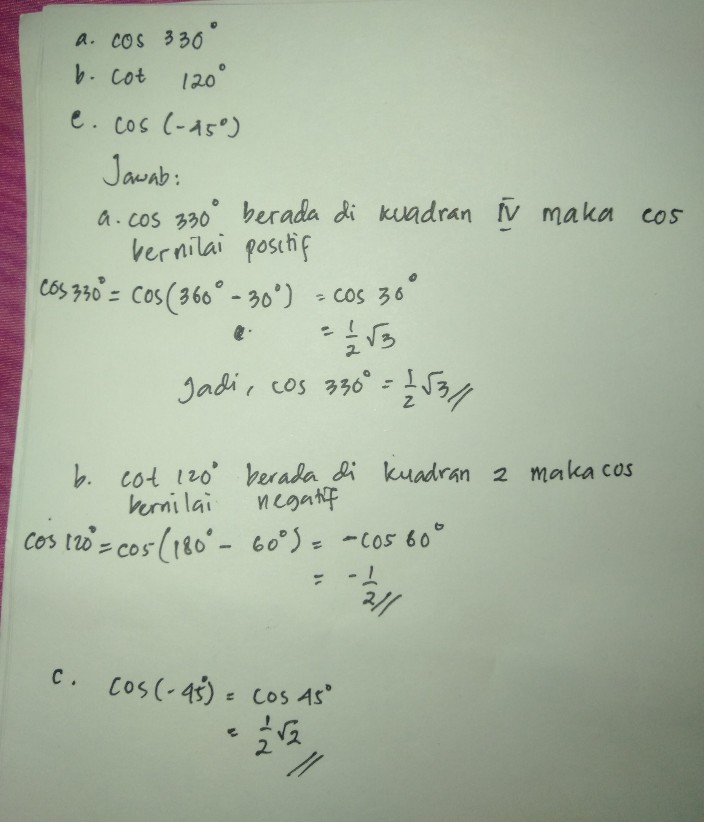 a. cos 330°
b. cot 120°
c. cos (-45°)
Jawab:
a. cos 330° berada di kuadran IV maka cos
bernilai positif
cos 330° = cos(360° - 30°) = cos 30°
= 1/2 √3
Jadi, cos 330° = 1/2 √3 //
b. cot 120° berada di kuadran 2 maka cos
bernilai negatif
cos 120° = cos(180° - 60°) = -cos 60°
= -1/2 //
c. cos(-45°) = cos 45°
= 1/2 √2
//